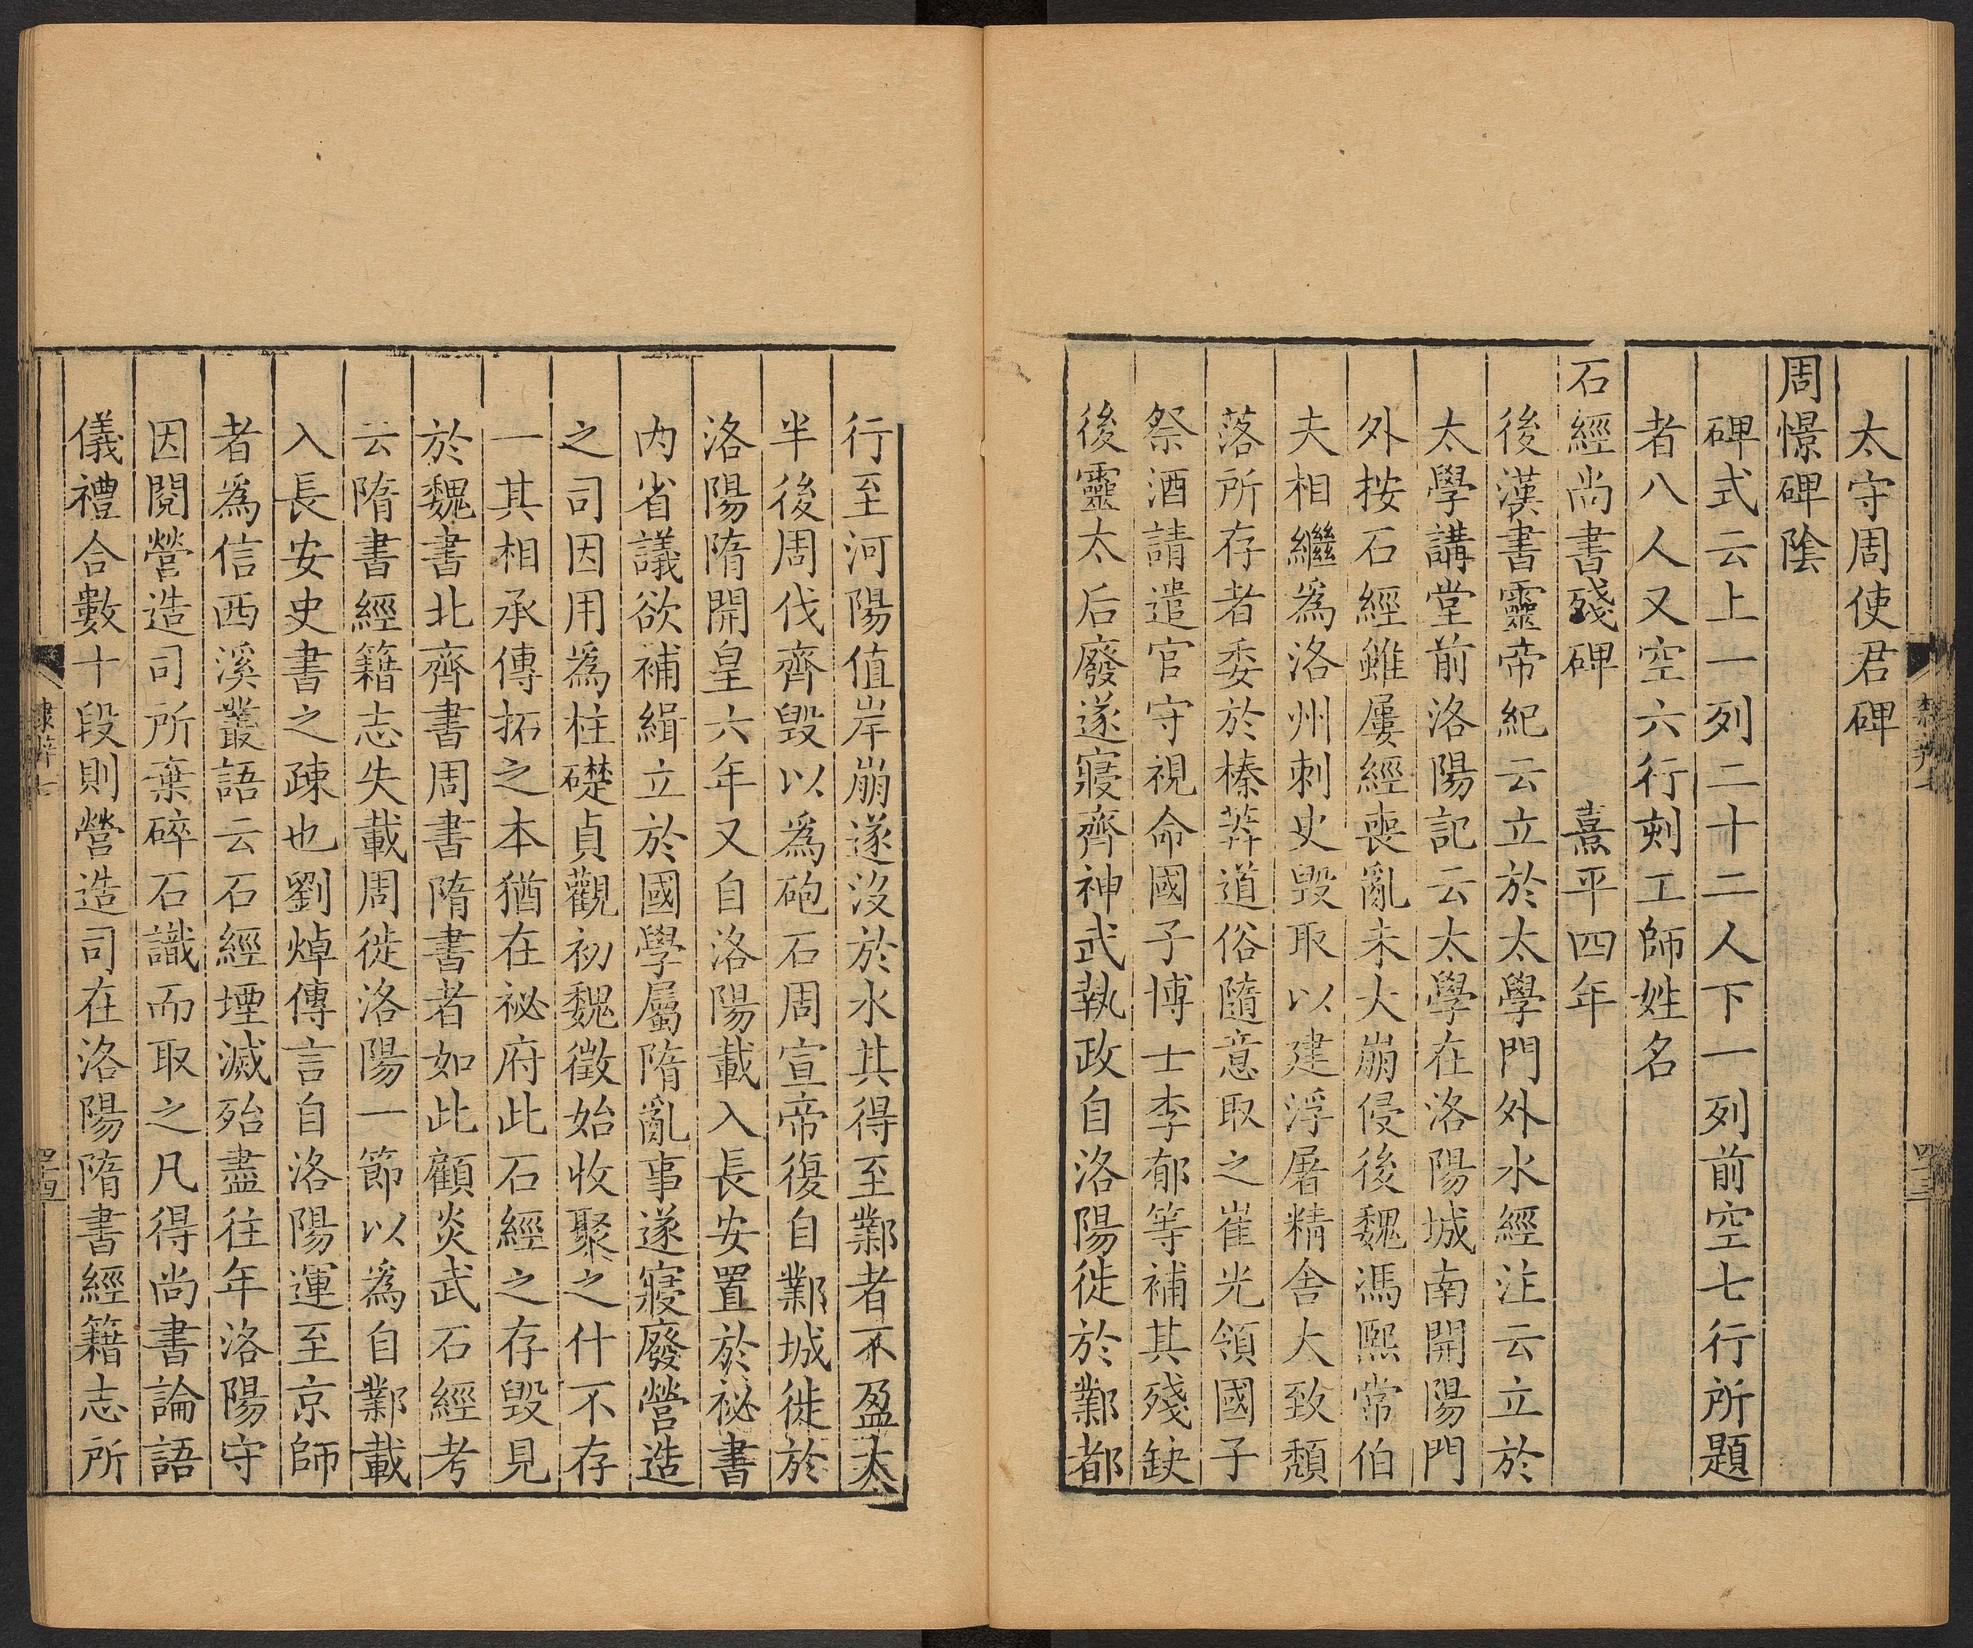 太守周使君碑
周憬碑陰
碑式云上一列二十二人下一列前空七行所題
者八人又空六行刻工師姓名
石經尚書殘碑　熹平四年
後漢書靈帝紀云立於太學門外水經注云立於
太學講堂前洛陽記云太學在洛陽城南開陽門
外按石經雖屢經喪亂未大崩侵後魏馮熙常伯
夫相繼爲洛州刺史毀取以建浮屠精舍大致頹
落所存者委於榛莽道俗隨意取之崔光領國子
祭酒請遣官守視命國子博士李郁等補其殘缺
後靈太后廢遂寢齊神武執政自洛陽徙於鄴都
行至河陽值岸崩遂沒於水其得至鄴者不盈太
半後周伐齊毀以爲砲石周宣帝復自鄴城徙於
洛陽隋開皇六年又自洛陽載入長安置於祕書
内省議欲補緝立於國學屬隋亂事遂寢廢營造
之司因用爲柱礎貞觀初魏徵始收聚之什不存
一其相承傳拓之本猶在祕府此石經之存毀見
於魏書北齊書周書隋書者如此顧炎武石經考
云隋書經籍志失載周徙洛陽一節以為自鄴載
入長安史書之疎也劉焯傳言自洛陽運至京師
者爲信西溪叢語云石經堙滅殆盡往年洛陽守
因閱營造司所棄碎石識而取之凡得尚書論語
儀禮合數十段則營造司在洛陽隋書經籍志所
隸辨七